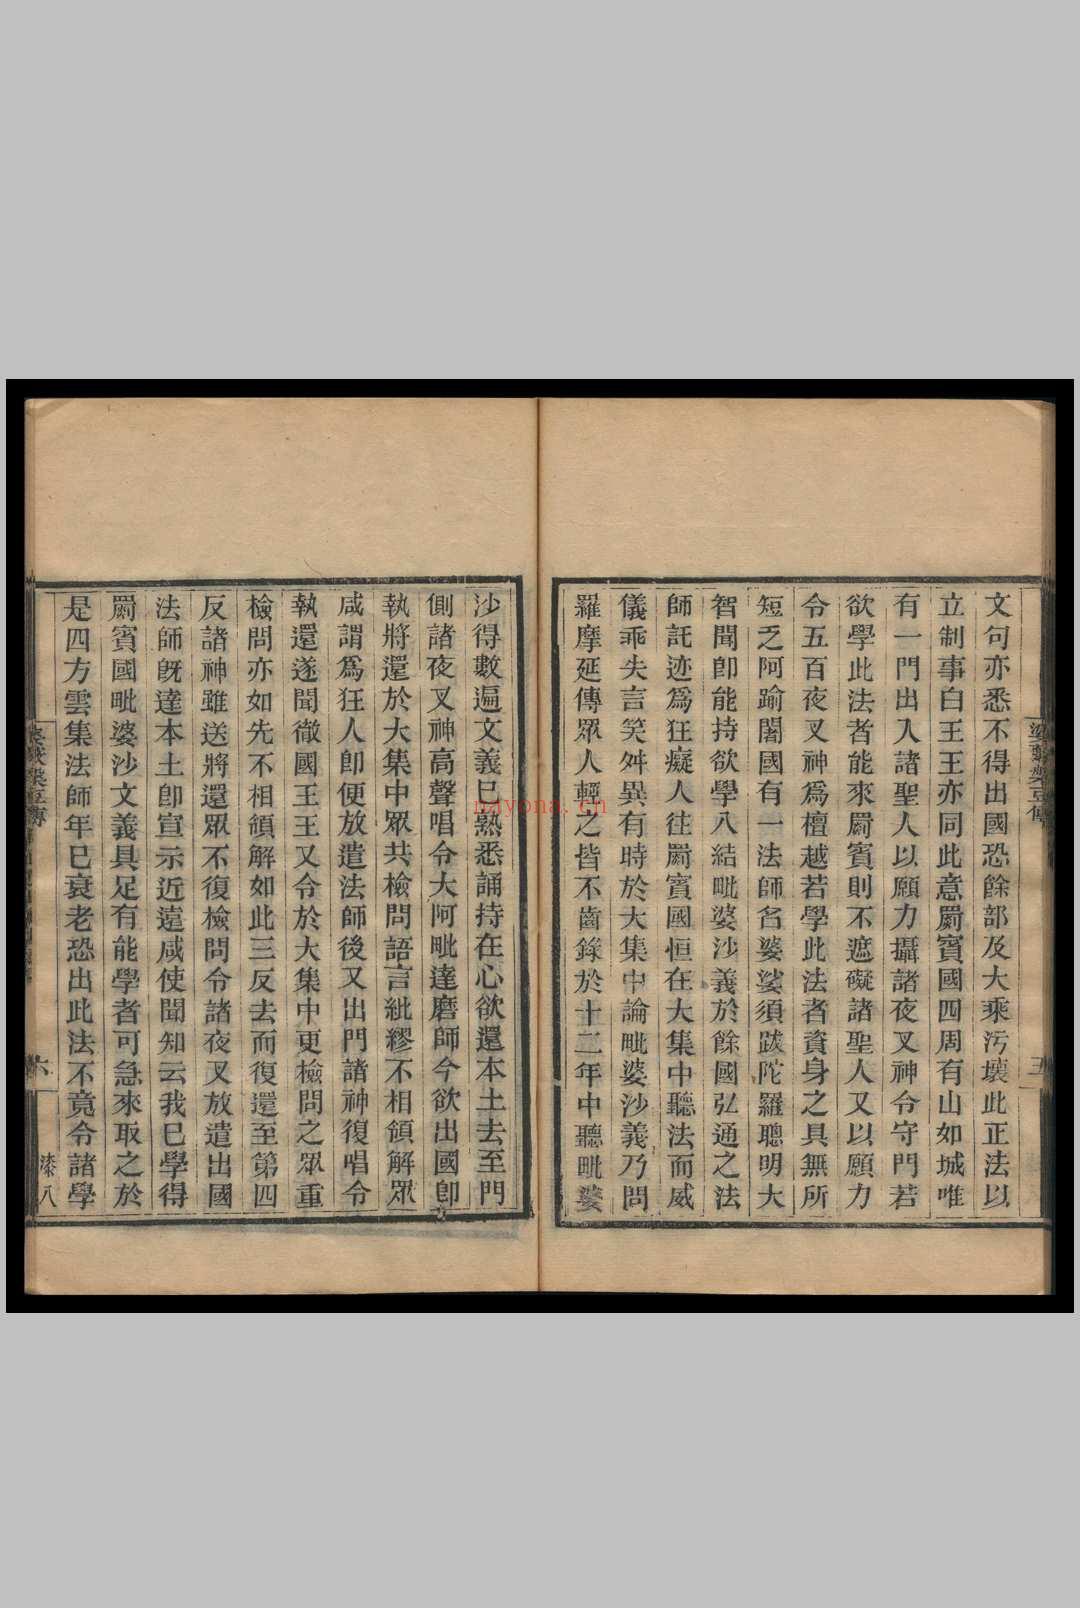 文句亦悉不得出國恐餘部及大乘污壞此正法以
立制事白王王亦同此意罽賓國四周有山如城唯
有一門出入諸聖人以願力攝諸夜叉神令守門若
欲學此法者能來罽賓則不遮礙諸聖人又以願力
令五百夜叉神爲檀越若學此法者資身之具無所
短乏阿踰闍國有一法師名婆娑須跋陀羅聰明大
智聞卽能持欲學八結毗婆沙義於餘國弘通之法
師託迹爲狂癡人往罽賓國恒在大集中聽法而威
儀乖失言笑舛異有時於大集中論毗婆沙義乃問
羅摩延傳眾人輕之皆不齒錄於十二年中聽毗婆
沙得數遍文義已熟悉誦持在心欲還本土去至門
側諸夜叉神高聲唱令大阿毗達磨師今欲出國卽
執將還於大集中眾共檢問語言紕繆不相領解眾
咸謂爲狂人卽便放遣法師後又出門諸神復唱令
執還遂聞徹國王王又令於大集中更檢問之眾重
檢問亦如先不相領解如此三反去而復還至第四
反諸神雖送將還眾不復檢問令諸夜叉放遣出國
法師旣達本土卽宣示近遠咸使聞知云我已學得
罽賓國毗婆沙文義具足有能學者可急來取之於
是四方雲集法師年已衰老恐出此法不竟令諸學
六
漆八
nayona.cn